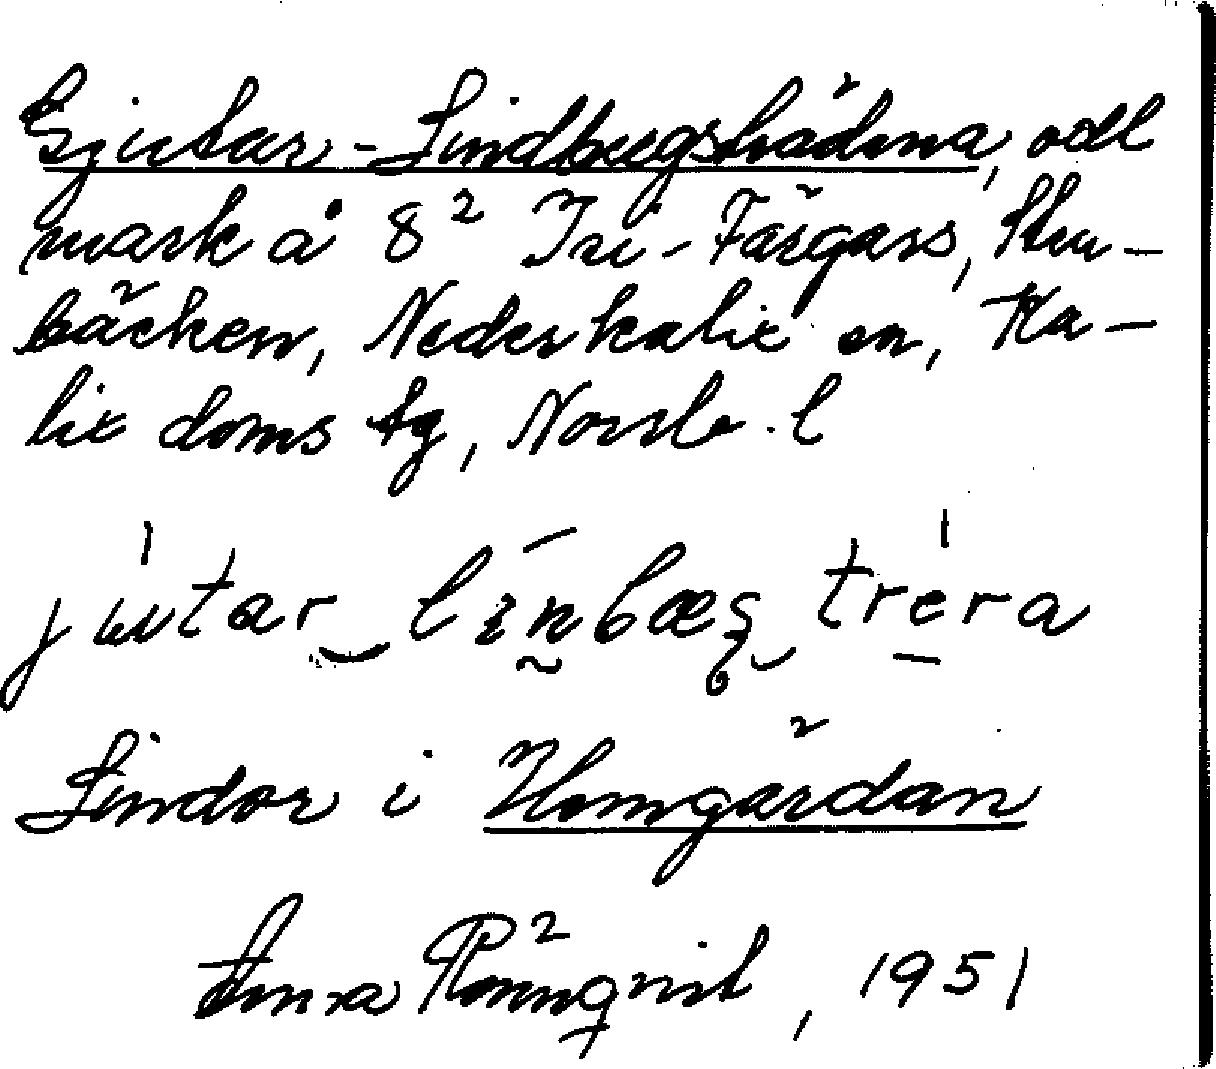 Gjutar-Lindbergsträdena, odl
mark å 8² Tri-Färgars, Sten-
bäcken, Nederkalix sn, Ka-
lix doms tg, Norrb. l
jutar linbæs trera
Lindor i Homgärdan
Anna Rönnqvist, 1951